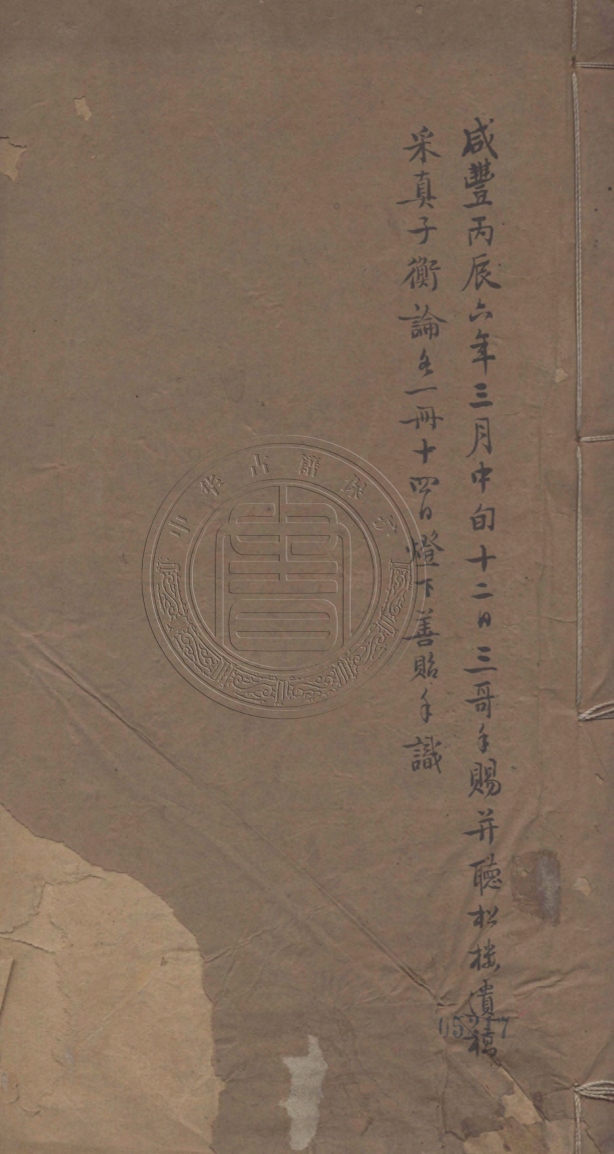 咸豐丙辰六年三月中旬十二日三哥手賜并聽松樓遺稿
采真子衡論各一冊十四日燈下善貽手識
中华古籍保护